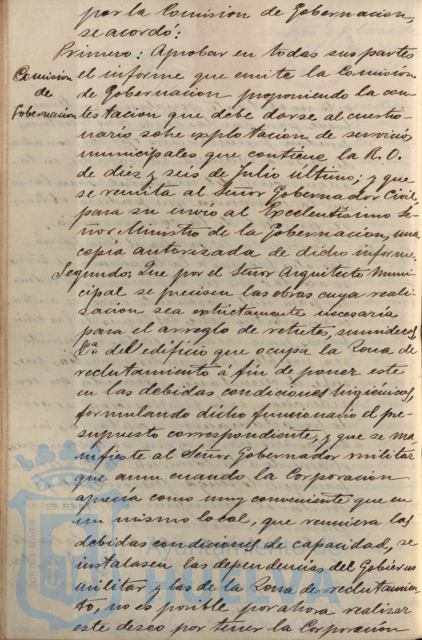 por la Comision de Gobernacion,
se acordo:
Primero: Aprobar en todas sus partes
Comision
de
Gobernacion
el informe que emite la Comision
de Gobernacion proponiendo la con-
testacion que debe darse al cuestio-
nario sobre explotacion de servicios
municipales que contiene la R. O.
de diez y seis de julio último; y que
se remita al Señor Gobernador Civil,
para su envio al Excelentísimo Se-
ñor Ministro de la Gobernacion, una
copia autorizada de dicho informe.
Segundo: Que por el Señor Arquitecto Muni-
cipal se precisen las obras cuya reali-
zacion sea extrictamente necesaria
para el arreglo de retretes, sumideros,
del edificio que ocupa la Zona de
reclutamiento á fin de poner este
en las debidas condiciones higiénicas,
formulando dicho funcionario el pre-
supuesto correspondiente, y que se ma-
nifieste al Señor Gobernador militar
que aun cuando la Corporacion
aprecia como muy conveniente que en
un mismo local, que reuniera las
debidas condiciones de capacidad, se
instalasen las dependencias del Gobierno
militar y las de la Zona de reclutamien-
to, no es posible por ahora realizar
este deseo por tener la Corporación
Ayuntamiento
HUELVA
PORTUS MARIS